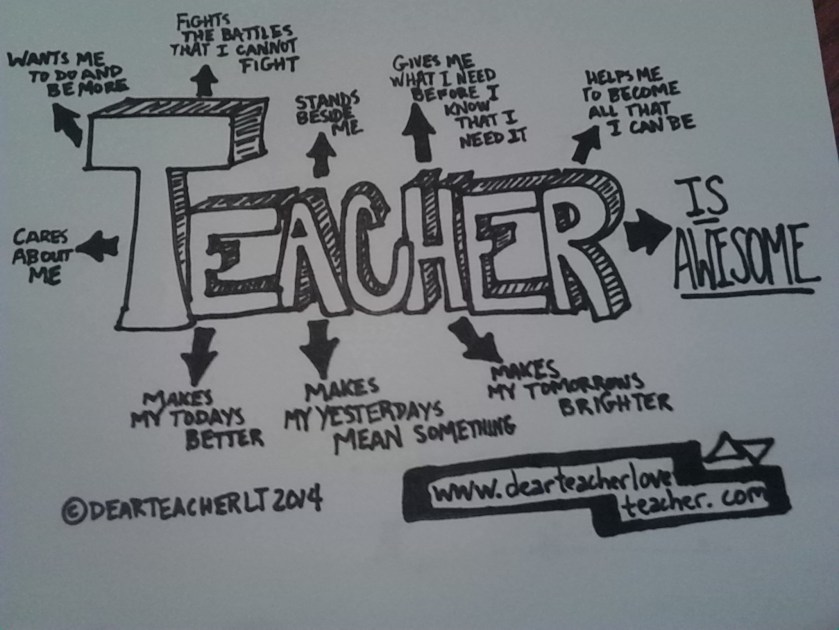 WANTS ME
TO DO AND
BE MORE
FIGHTS
THE BATTLES
THAT I CANNOT
FIGHT
STANDS
BESIDE
ME
GIVES ME
WHAT I NEED
BEFORE I
KNOW
THAT I
NEED IT
HELPS ME
TO BECOME
ALL THAT
I CAN BE
CARES
ABOUT
ME
TEACHER
IS
AWESOME
MAKES
MY TODAYS
BETTER
MAKES
MY YESTERDAYS
MEAN SOMETHING
MAKES
MY TOMORROWS
BRIGHTER
©DEARTEACHERLT 2014
www.dearteacherlove
teacher.com